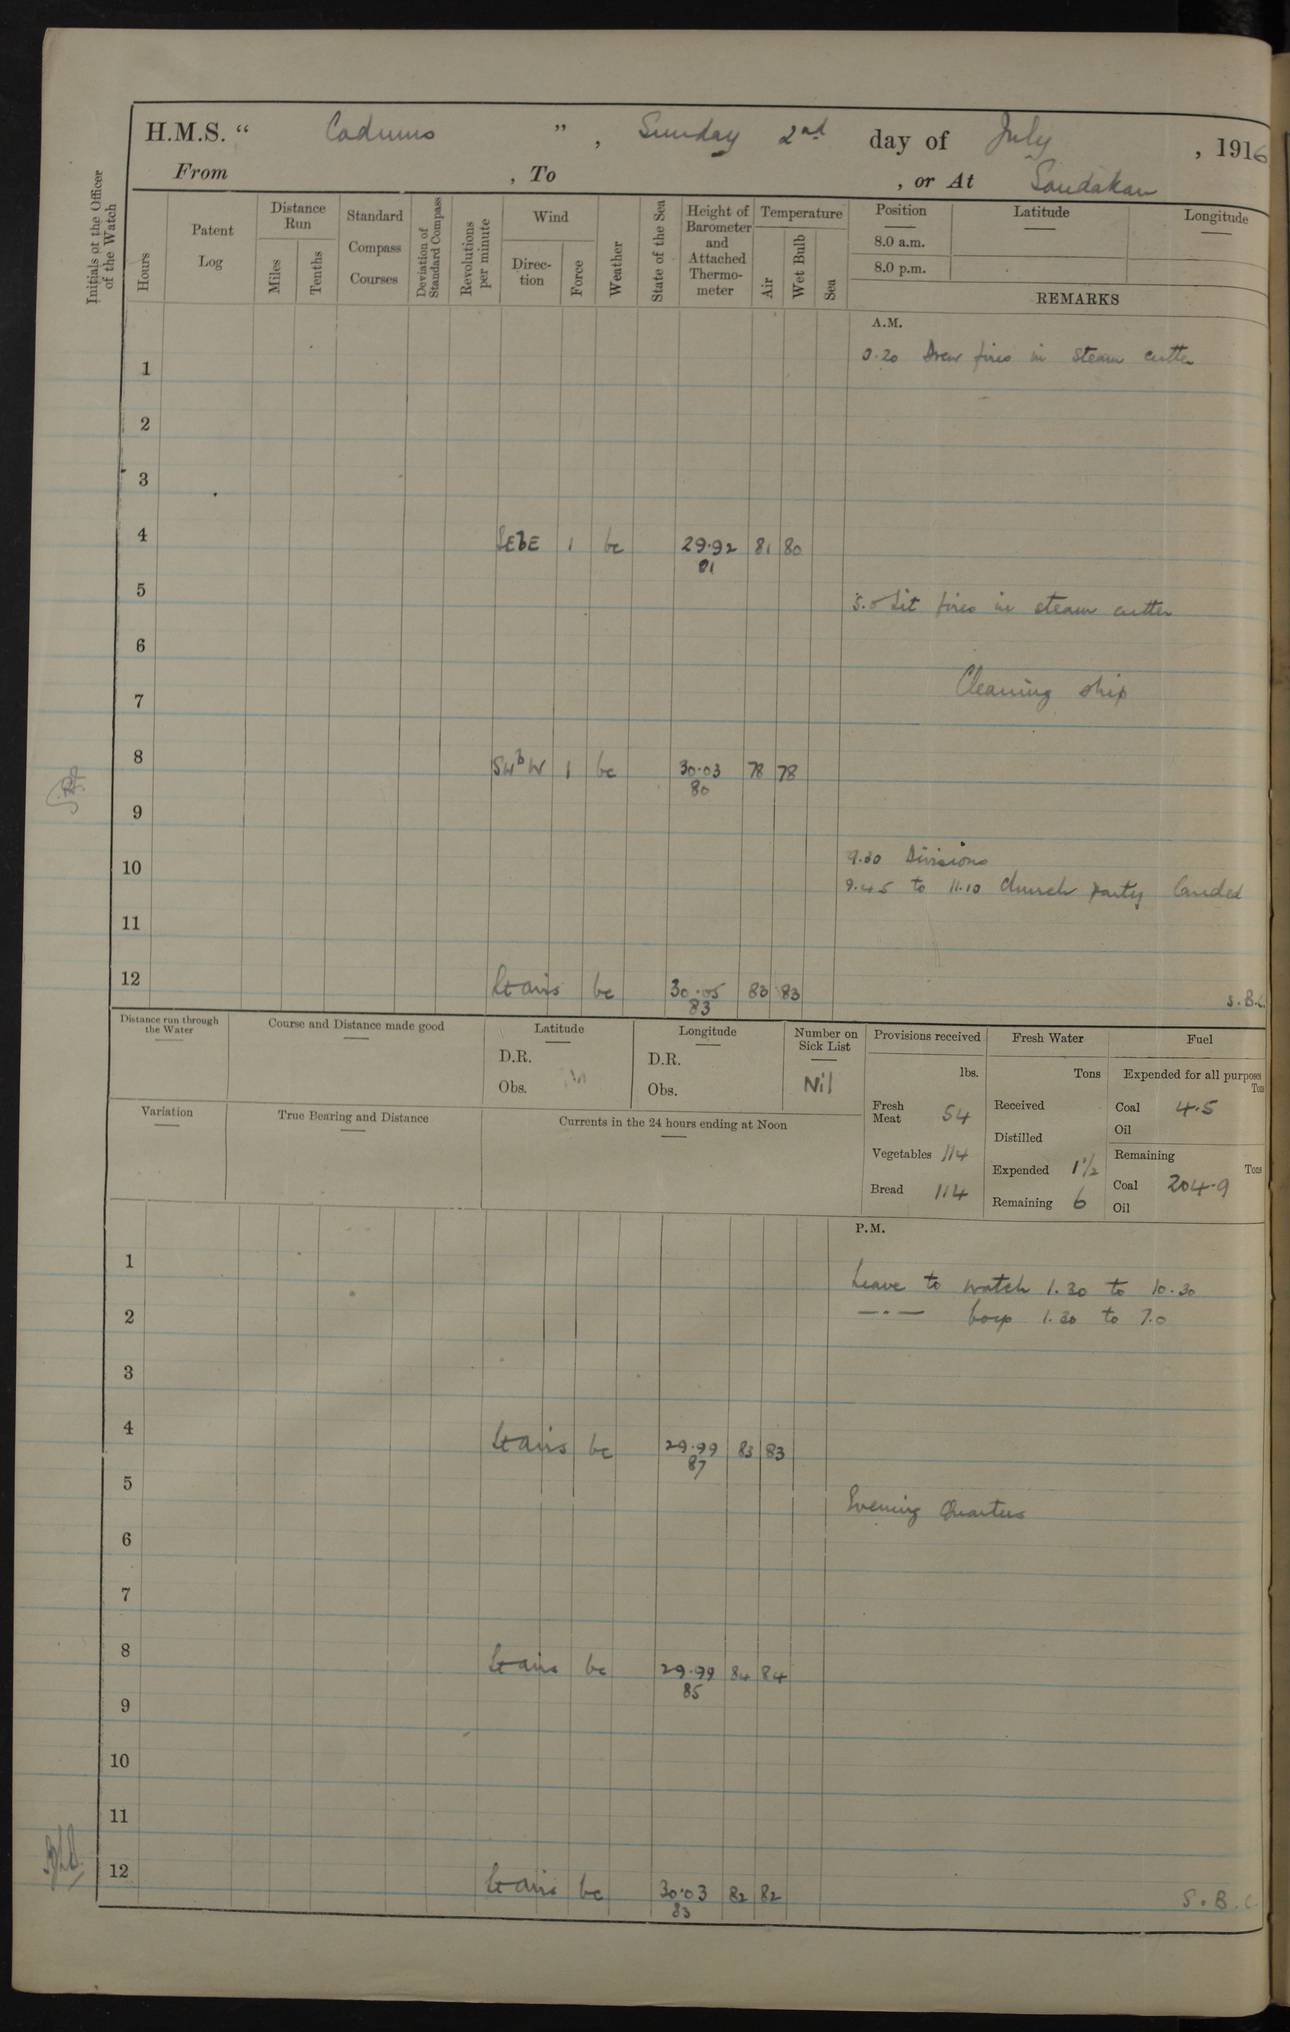 H.M.S. “ Cadmus ” , Sunday 2nd day of July , 1916
From , To , or At Sandakan
Initials of the Officer of the Watch
Hours
Patent Log
Distance Run
Miles
Tenths
Standard Compass Courses
Deviation of Standard Compass
Revolutions per minute
Wind
Direc-tion
Force
Weather
State of the Sea
Height of Barometer and Attached Thermo-meter
Temperature
Air
Wet Bulb
Sea
Position Latitude Longitude
8.0 a.m.
8.0 p.m.
REMARKS
A.M.
0.20 Drew fires in steam cutter
1
2
3
4 SEbE 1 bc 29.92 81 80
81
5
5.0 Lit fires in steam cutter
6
Cleaning ship
7
8 SWbW 1 bc 30.03 78 78
80
9
9.30 Divisions
10
9.45 to 11.10 Church party landed
11
12 Lt airs bc 30.05 83 83
83
S.B.C.
Distance run through the Water
Course and Distance made good
Latitude
D.R.
Obs.
Longitude
D.R.
Obs.
Number on Sick List
Nil
Provisions received
lbs.
Fresh Meat 54
Vegetables 114
Bread 114
Fresh Water
Tons
Received
Distilled
Expended 1½
Remaining 6
Fuel
Expended for all purposes
Tons
Coal 4.5
Oil
Remaining
Tons
Coal 204.9
Oil
Variation
True Bearing and Distance
Currents in the 24 hours ending at Noon
P.M.
1
Leave to watch 1.30 to 10.30
2
—·— boys 1.30 to 7.0
3
4 Lt airs bc 29.99 83 83
87
5
Evening Quarters
6
7
8 Lt airs bc 29.99 84 84
85
9
10
11
12 Lt airs bc 30.03 82 82
83
S.B.C.